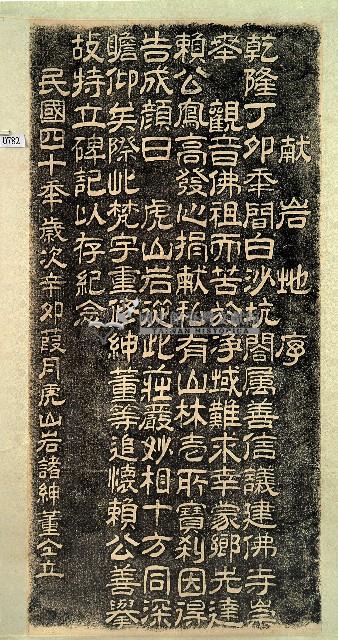 献岩地序
乾隆丁卯年間白沙坑閤属善信議建佛寺崇
奉　觀音佛祖而苦於淨域難求幸蒙鄉先達
賴公鳳高發心捐献私有山林壱所寶刹因得
告成顏曰　虎山岩從此莊嚴妙相十方同深
瞻仰矣際此梵宇重修紳董等追懷賴公善舉
故特立碑記以存紀念
民國四十年歲次辛卯葭月虎山岩諸紳董仝立
0782
TAIWAN HISTORICA